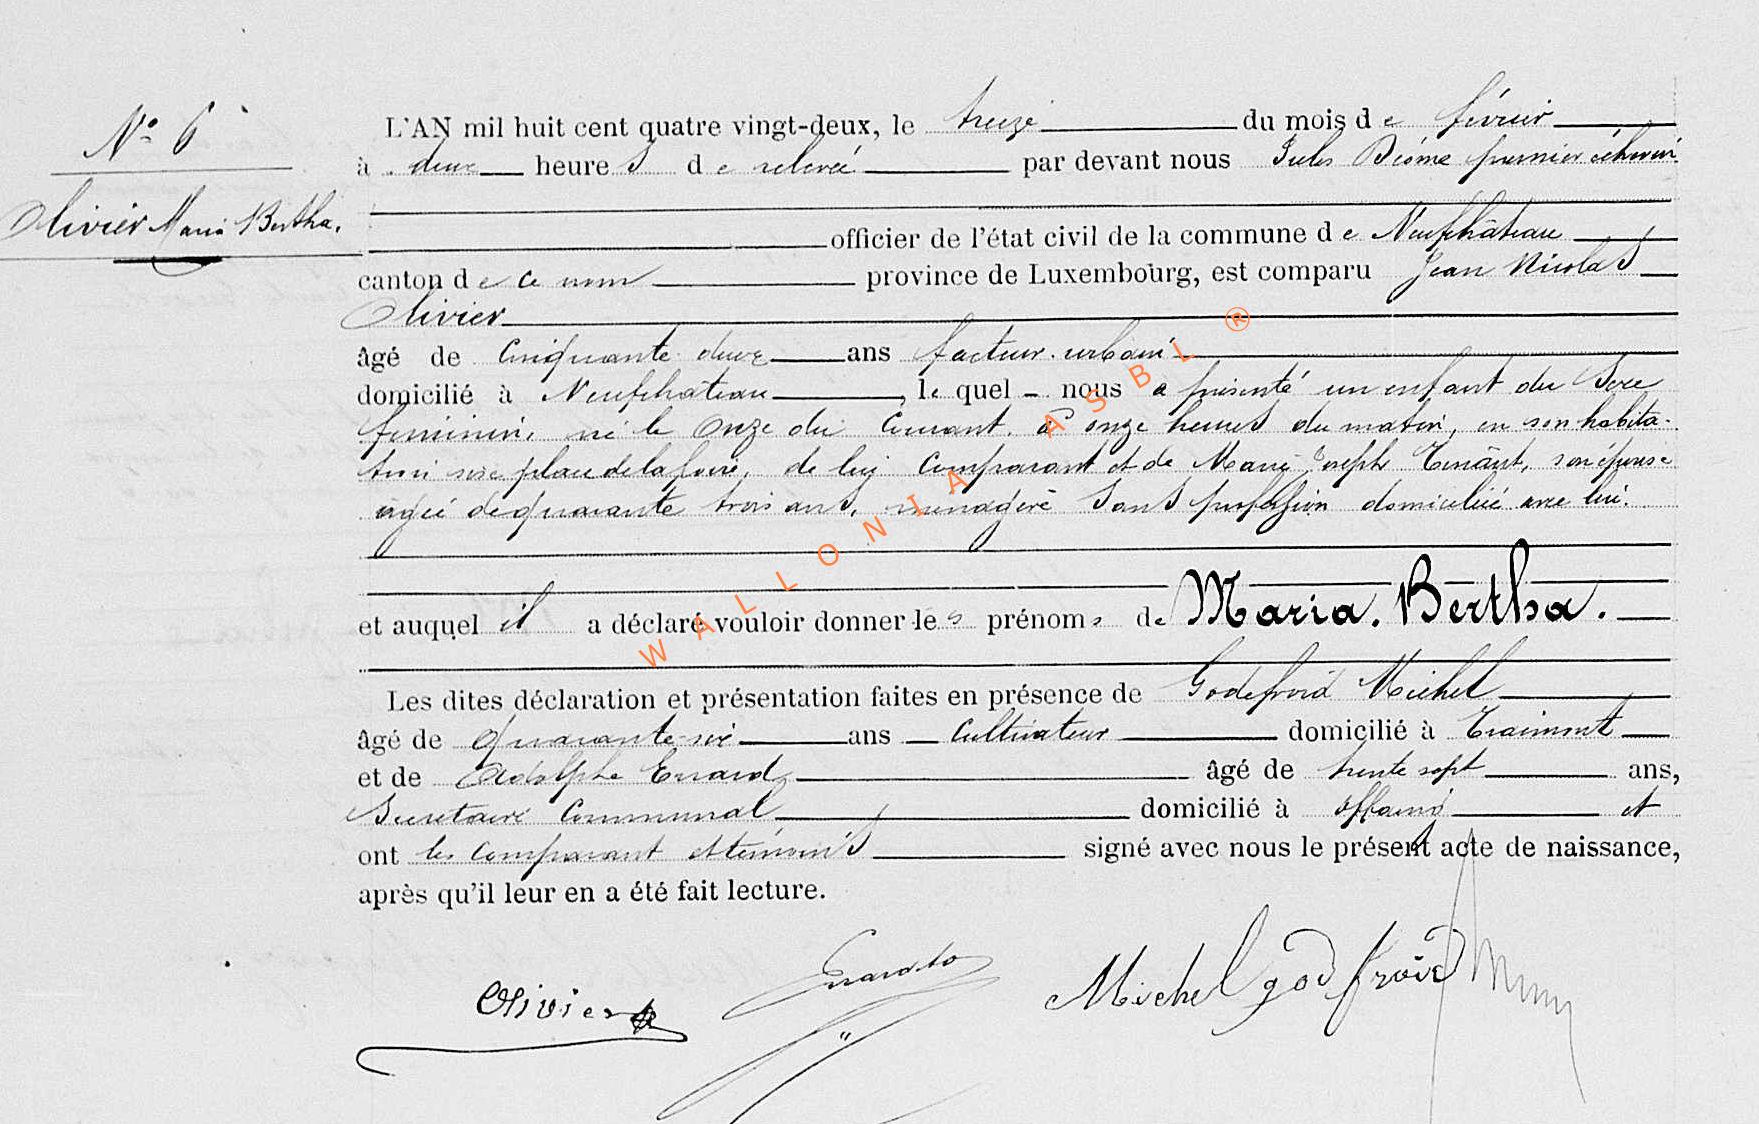 N° 6
Olivier Maria Bertha.
L'AN mil huit cent quatre vingt-deux, le treize du mois de février
à deux heures de relevée par devant nous Jules premier échevin
officier de l'état civil de la commune de Neufchâteau
canton de ce nom province de Luxembourg, est comparu Jean Nicolas
Olivier
âgé de Cinquante deux ans facteur urbain
domicilié à Neufchâteau, lequel nous a présenté un enfant du Sexe
féminin, né le Onze du Courant à onze heures du matin, en son habita-
tion sise place de la foire, de lui Comparant et de Marie Joseph son épouse
agée de quarante trois ans, ménagère Sans profession domiciliée avec lui.
et auquel il a déclaré vouloir donner les prénoms de Maria. Bertha.
Les dites déclaration et présentation faites en présence de Godefroid Michel
âgé de Quarante-six ans Cultivateur domicilié à Traimont
et de Adolphe Evrard âgé de trente sept ans,
Secrétaire Communal domicilié à offaing et
ont les Comparant et témoins signé avec nous le présent acte de naissance,
après qu'il leur en a été fait lecture.
Olivier
Michel godfroid
WALLONIA ASBL ®